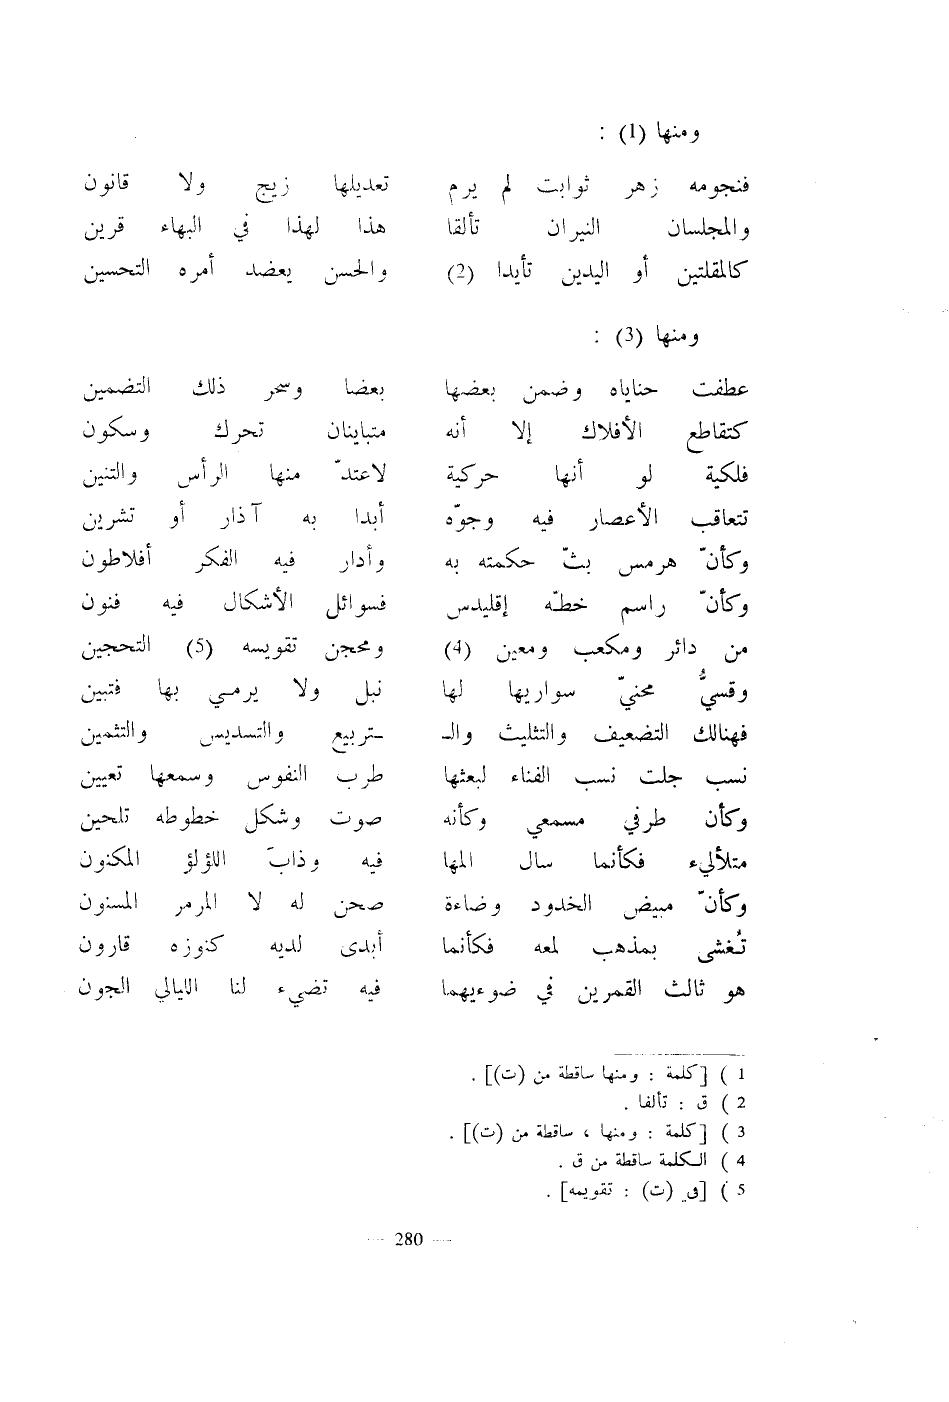 ومنها (1) :
فنجومه زهر ثوابت لم يرم تعديلها زيج ولا قانون
والمجلسان النيران تألقا هذا لهذا في البهاء قرين
كالمقلتين أو اليدين تأيدا (2) والحسن يعضد أمره التحسين
ومنها (3) :
عطفت حناياه وضمن بعضها بعضا وسحر ذلك التضمين
كتقاطع الأفلاك إلا أنه متباينان تحرك وسكون
فلكية لو أنها حركية لاعتدّ منها الرأس والتنين
تتعاقب الأعصار فيه وجوّه أبدا به آذار أو تشرين
وكأنّ هرمس بثّ حكمته به وأدار فيه الفكر أفلاطون
وكأنّ راسم خطّه إقليدس فسوائل الأشكال فيه فنون
من دائر ومكعب ومعين (4) ومحجن تقويسه (5) التحجين
وقسيُّ محنيّ سواريها لها نبل ولا يرمي بها فتبين
فهنالك التضعيف والتثليث والـ ـتربيع والتسديس والتثمين
نسب جلت نسب الفناء لبعثها طرب النفوس وسمعها تعيين
وكأن طرفي مسمعي وكأنه صوت وشكل خطوطه تلحين
متلأليء فكأنما سال المها فيه وذابَ اللؤلؤ المكنون
وكأنّ مبيض الخدود وضاءة صحن له لا المرمر المسنون
تُغشى بمذهب لمعه فكأنما أبدى لديه كنوزه قارون
هو ثالث القمرين في ضوءيهما فيه تضيء لنا الايالي الجون
1 ) [كلمة : ومنها ساقطة من (ت)] .
2 ) ق : تألفا .
3 ) [كلمة : ومنها ، ساقطة من (ت)] .
4 ) الكلمة ساقطة من ق .
5 ) [في (ت) : تقويمه] .
— 280 —